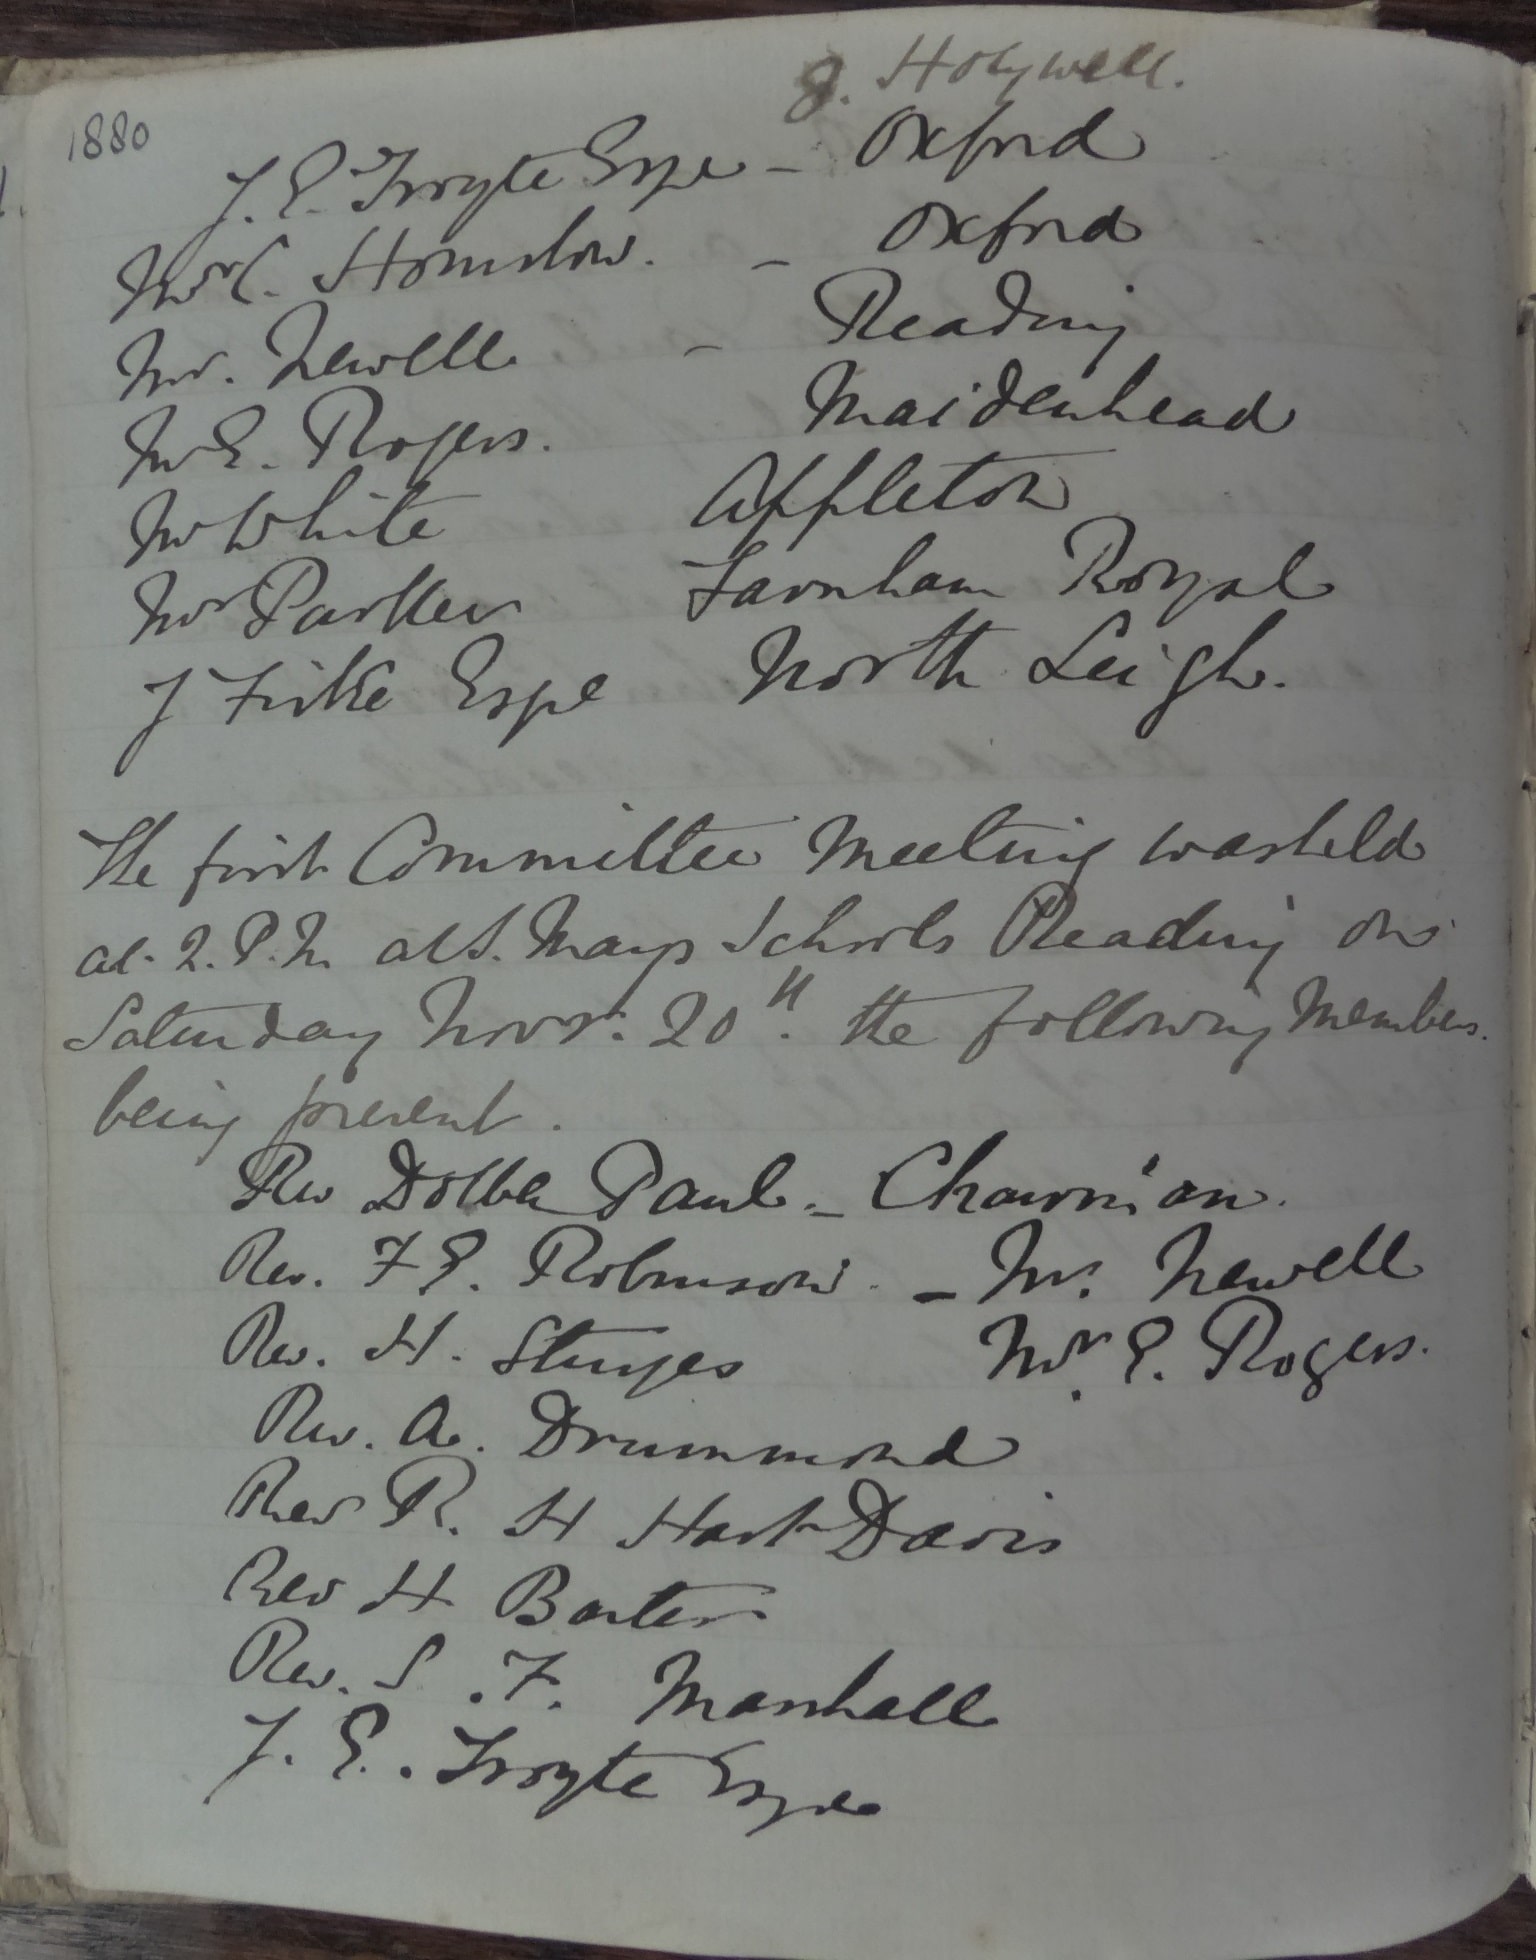 8. Holywell.
1880
J. E. Troyte Esqe - Oxford
Mr C. Hounslow. - Oxford
Mr. Newell - Reading
Mr E. Rogers. Maidenhead
Mr White Appleton
Mr Parker Farnham Royal
J Firke Esqe North Leigh.
The first Committee Meeting was held
at. 2. P.M. at S. Marys Schools Reading on
Saturday Novr. 20th. the following Members.
being present.
Rev Dolben Paul - Chairman.
Rev. F E. Robinson. - Mr. Newell
Rev. H. Sturges Mr. E. Rogers.
Rev. A. Drummond
Rev R. H Hart Davis
Rev H Barter
Rev. S. F. Marshall
J. E. Troyte Esqe